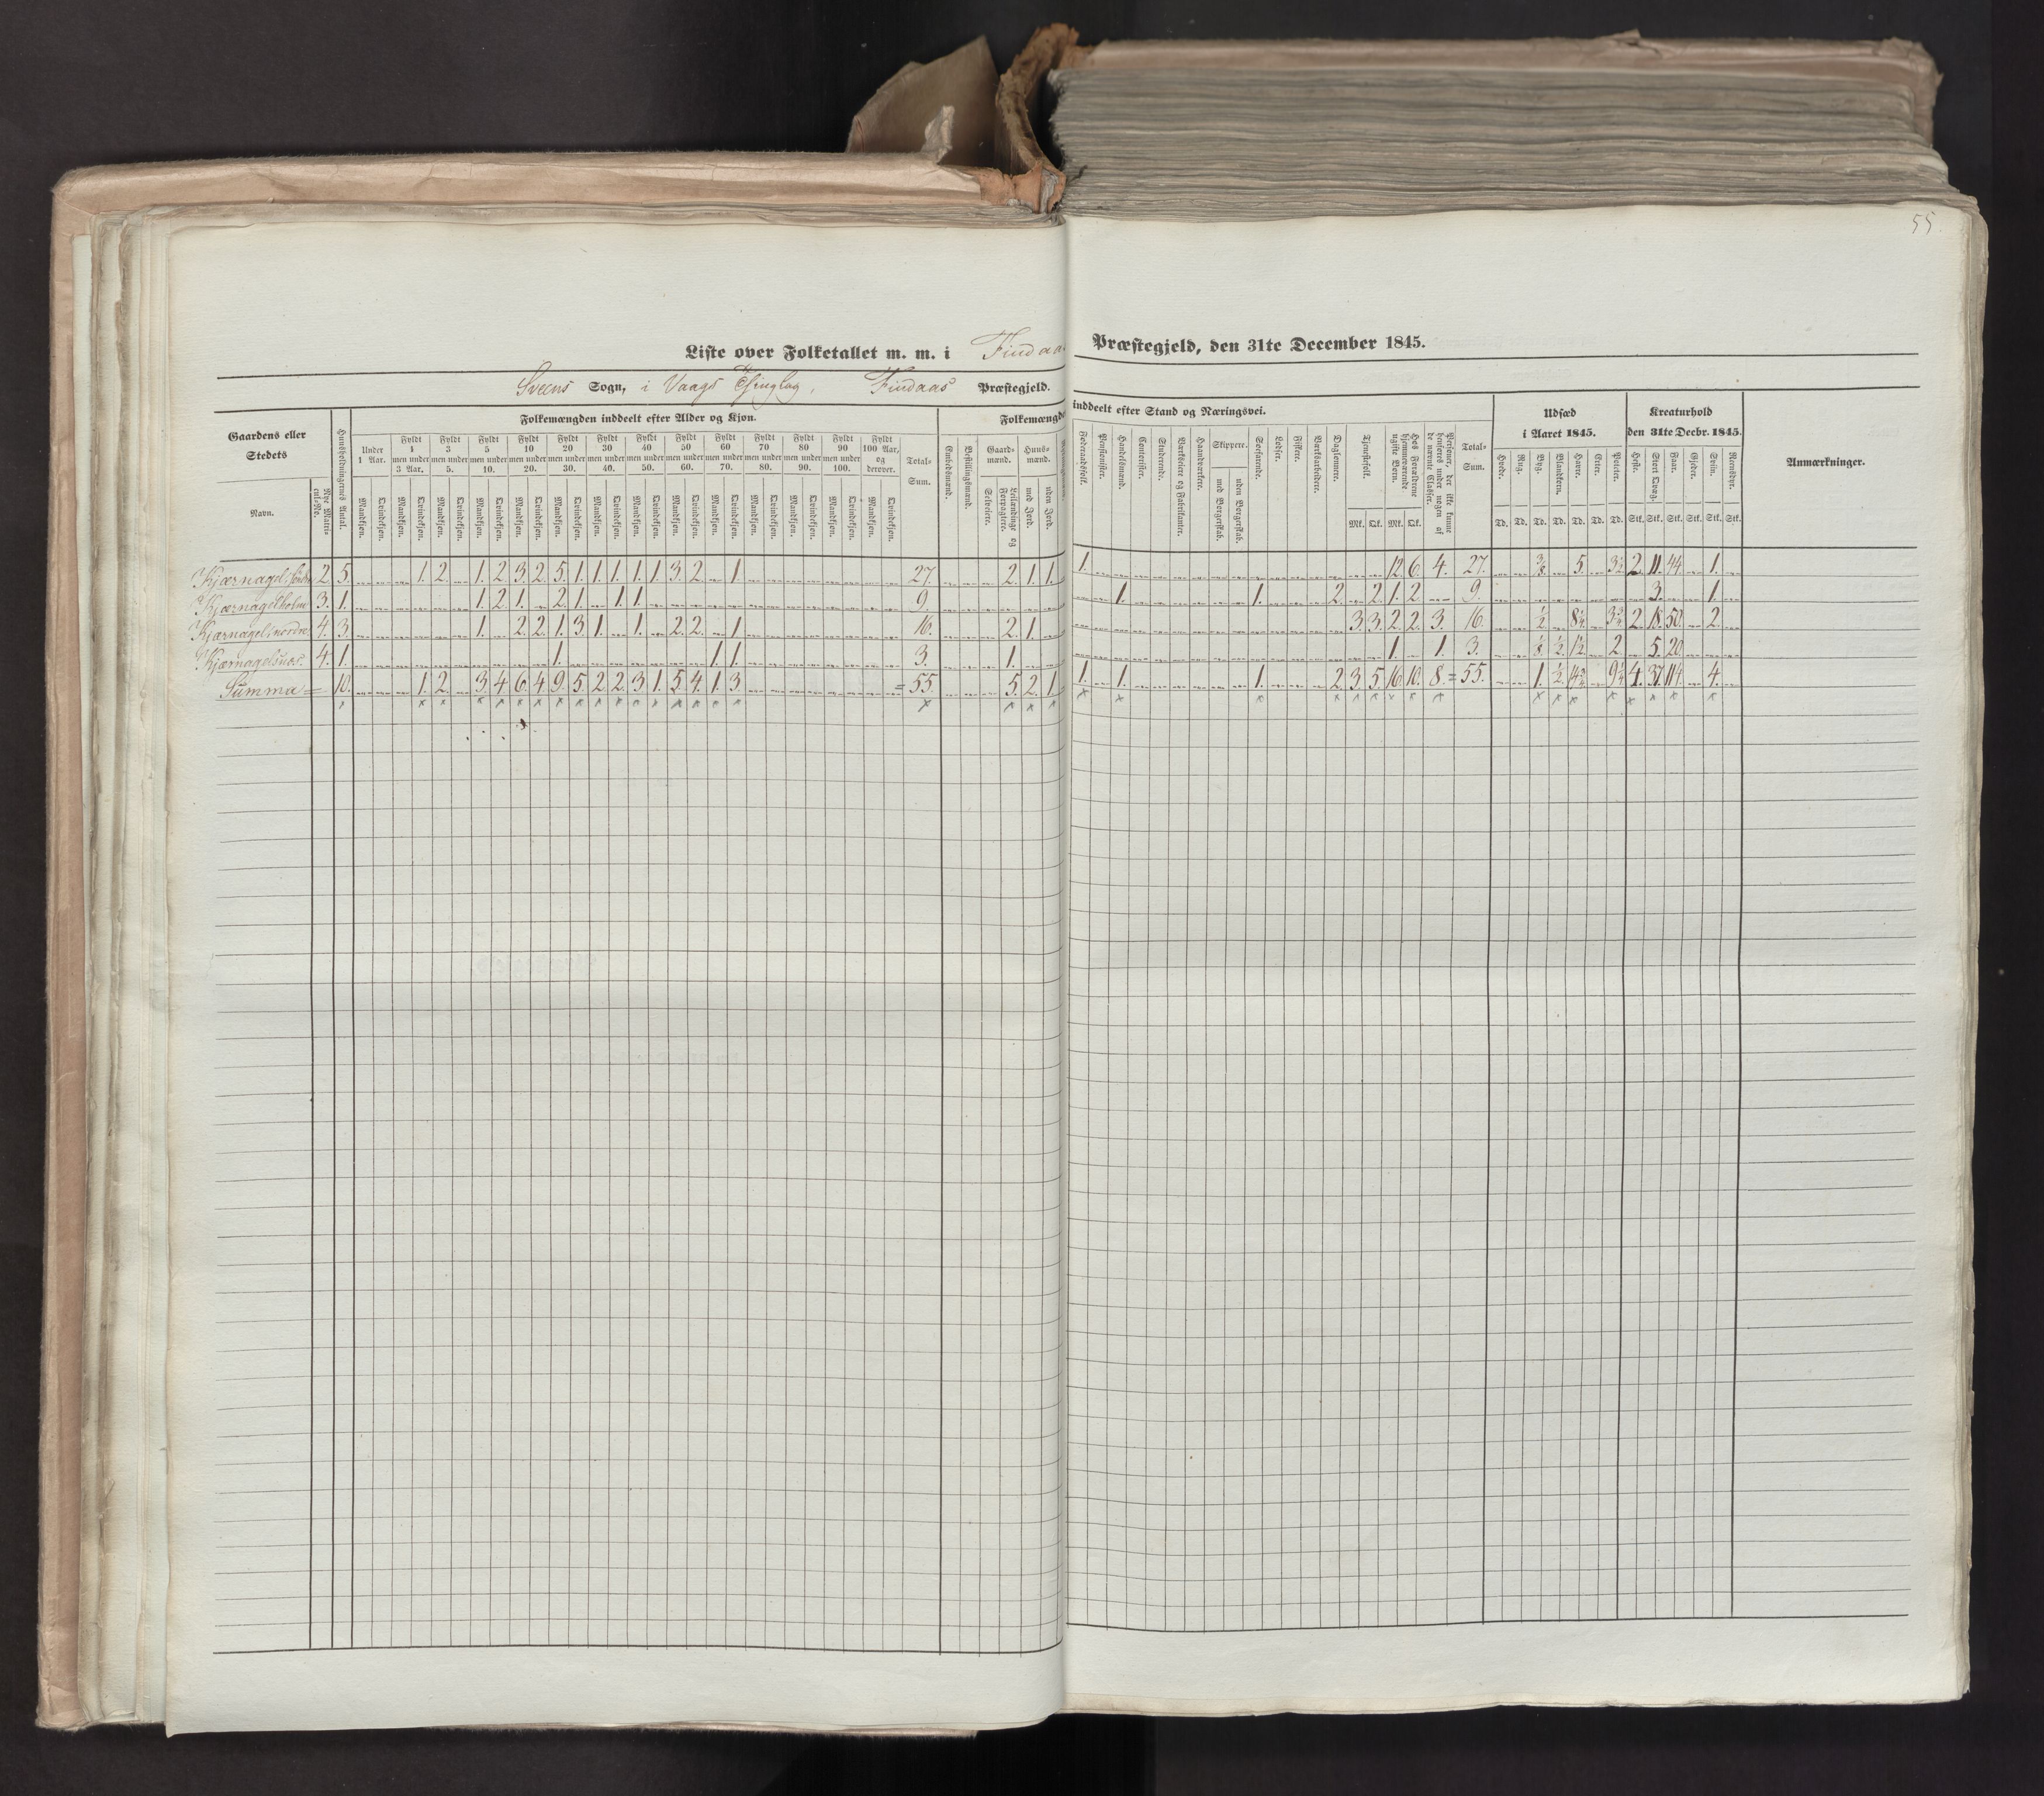 55.
Liste over Folketallet m. m. i Findaas Præstegjeld, den 31te December 1845.
Sveens Sogn, i Vaags Thinglag, Findaas Præstegjeld.
Gaardens eller Stedets Navn.
Nye Matricul-No.
Huusholdningernes Antal.
Folkemængden inddeelt efter Alder og Kjøn.
Under 1 Aar. Fyldt 1 men under 3 Aar. Fyldt 3 men under 5. Fyldt 5 men under 10. Fyldt 10 men under 20. Fyldt 20 men under 30. Fyldt 30 men under 40. Fyldt 40 men under 50. Fyldt 50 men under 60. Fyldt 60 men under 70. Fyldt 70 men under 80. Fyldt 80 men under 90. Fyldt 90 men under 100. Fyldt 100 Aar, og derover. Total-Sum.
Mandkjøn. Qvindekjøn. Mandkjøn. Qvindekjøn. Mandkjøn. Qvindekjøn. Mandkjøn. Qvindekjøn. Mandkjøn. Qvindekjøn. Mandkjøn. Qvindekjøn. Mandkjøn. Qvindekjøn. Mandkjøn. Qvindekjøn. Mandkjøn. Qvindekjøn. Mandkjøn. Qvindekjøn. Mandkjøn. Qvindekjøn. Mandkjøn. Qvindekjøn. Mandkjøn. Qvindekjøn. Mandkjøn. Qvindekjøn.
Folkemængden inddeelt efter Stand og Næringsvei.
Embedsmænd. Bestillingsmænd. Gaardmænd. Selveiere. Leilændinge og Forpagtere. Huusmænd. med Jord. uden Jord.
Føderaadsfolk. Pensionister. Handelsmænd. Contorister. Studerende. Værkseiere og Fabrikanter. Haandværkere. Skippere. med Borgerskab. uden Borgerskab. Søefarende. Lodser. Fiskere. Værksarbeidere. Daglønnere. Tjenestefolk. Mk. Qk. Hos Forældrene hjemmeværende ugifte Børn. Mk. Qk. Personer, der ikke kunne henføres under nogen af de nævnte Classer. Total-Sum.
Udsæd i Aaret 1845.
Hvede. Rug. Byg. Blandkorn. Havre. Erter. Poteter.
Td. Td. Td. Td. Td. Td. Td.
Kreaturhold den 31te Decbr. 1845.
Heste. Stort Qvæg. Faar. Gjeder. Sviin. Reensdyr.
Stk. Stk. Stk. Stk. Stk. Stk.
Anmærkninger.
Kjærnagel, søndre 2. 5. 1. 2. 1. 2. 3. 2. 5. 1. 1. 1. 1. 1. 3. 2. 1. 27. 2. 1. 1. 1. 12. 6. 4. 27. 3/8. 5. 2. 11. 44. 1.
Kjærnagelholm 3. 1. 1. 2. 1. 2. 1. 1. 1. 9. 1. 1. 2. 2. 1. 2. 9. 3. 1.
Kjærnagel, nordre 4. 3. 1. 2. 2. 1. 3. 1. 1. 2. 2. 1. 16. 2. 1. 3. 3. 2. 2. 3. 16. 1/2. 2. 18. 50. 2.
Kjærnagelsnæs. 4. 1. 1. 1. 1. 3. 1. 1. 1. 3. 1/8. 1/2. 1 1/2. 2. 5. 20.
Summa = 10. 1. 2. 3. 4. 6. 4. 9. 5. 2. 2. 3. 1. 5. 4. 1. 3. = 55. 5. 2. 1. 1. 1. 1. 2. 3. 5. 16. 10. 8. = 55. 1. 1/2. 4. 37. 114. 4.